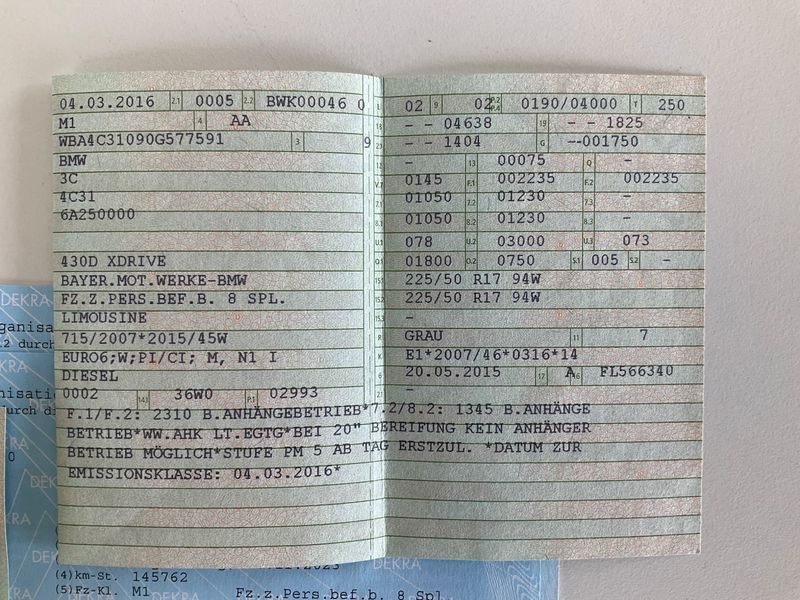 04.03.2016 2.1 0005 2.2 BWK00046 0 L 02 9 02 P.2 P.4 0190/04000 T 250
M1 4 AA 18 - - 04638 19 - - 1825
WBA4C31090G577591 3 9 20 - - 1404 G --001750
BMW 12 - 13 00075 Q -
3C V.7 0145 F.1 002235 F.2 002235
4C31 7.1 01050 7.2 01230 7.3 -
6A250000 8.1 01050 8.2 01230 8.3 -
U.1 078 U.2 03000 U.3 073
430D XDRIVE O.1 01800 O.2 0750 S.1 005 S.2 -
BAYER.MOT.WERKE-BMW 15.1 225/50 R17 94W
FZ.Z.PERS.BEF.B. 8 SPL. 15.2 225/50 R17 94W
LIMOUSINE 15.3 -
715/2007*2015/45W R GRAU 11 7
EURO6;W;PI/CI; M, N1 I K E1*2007/46*0316*14
DIESEL 6 20.05.2015 17 A 16 FL566340
0002 14.1 36W0 P.1 02993 21 -
F.1/F.2: 2310 B.ANHÄNGEBETRIEB*7.2/8.2: 1345 B.ANHÄNGE
BETRIEB*WW.AHK LT.EGTG*BEI 20" BEREIFUNG KEIN ANHÄNGER
BETRIEB MÖGLICH*STUFE PM 5 AB TAG ERSTZUL. *DATUM ZUR
EMISSIONSKLASSE: 04.03.2016*
DEKRA
ganisa
.2 durch
DEKRA
nisati
durch di
0
DEKRA
DEKRA
DEKRA
(4)km-St. 145762
(5)Fz-Kl. M1 Fz.z.Pers.bef.b. 8 Spl